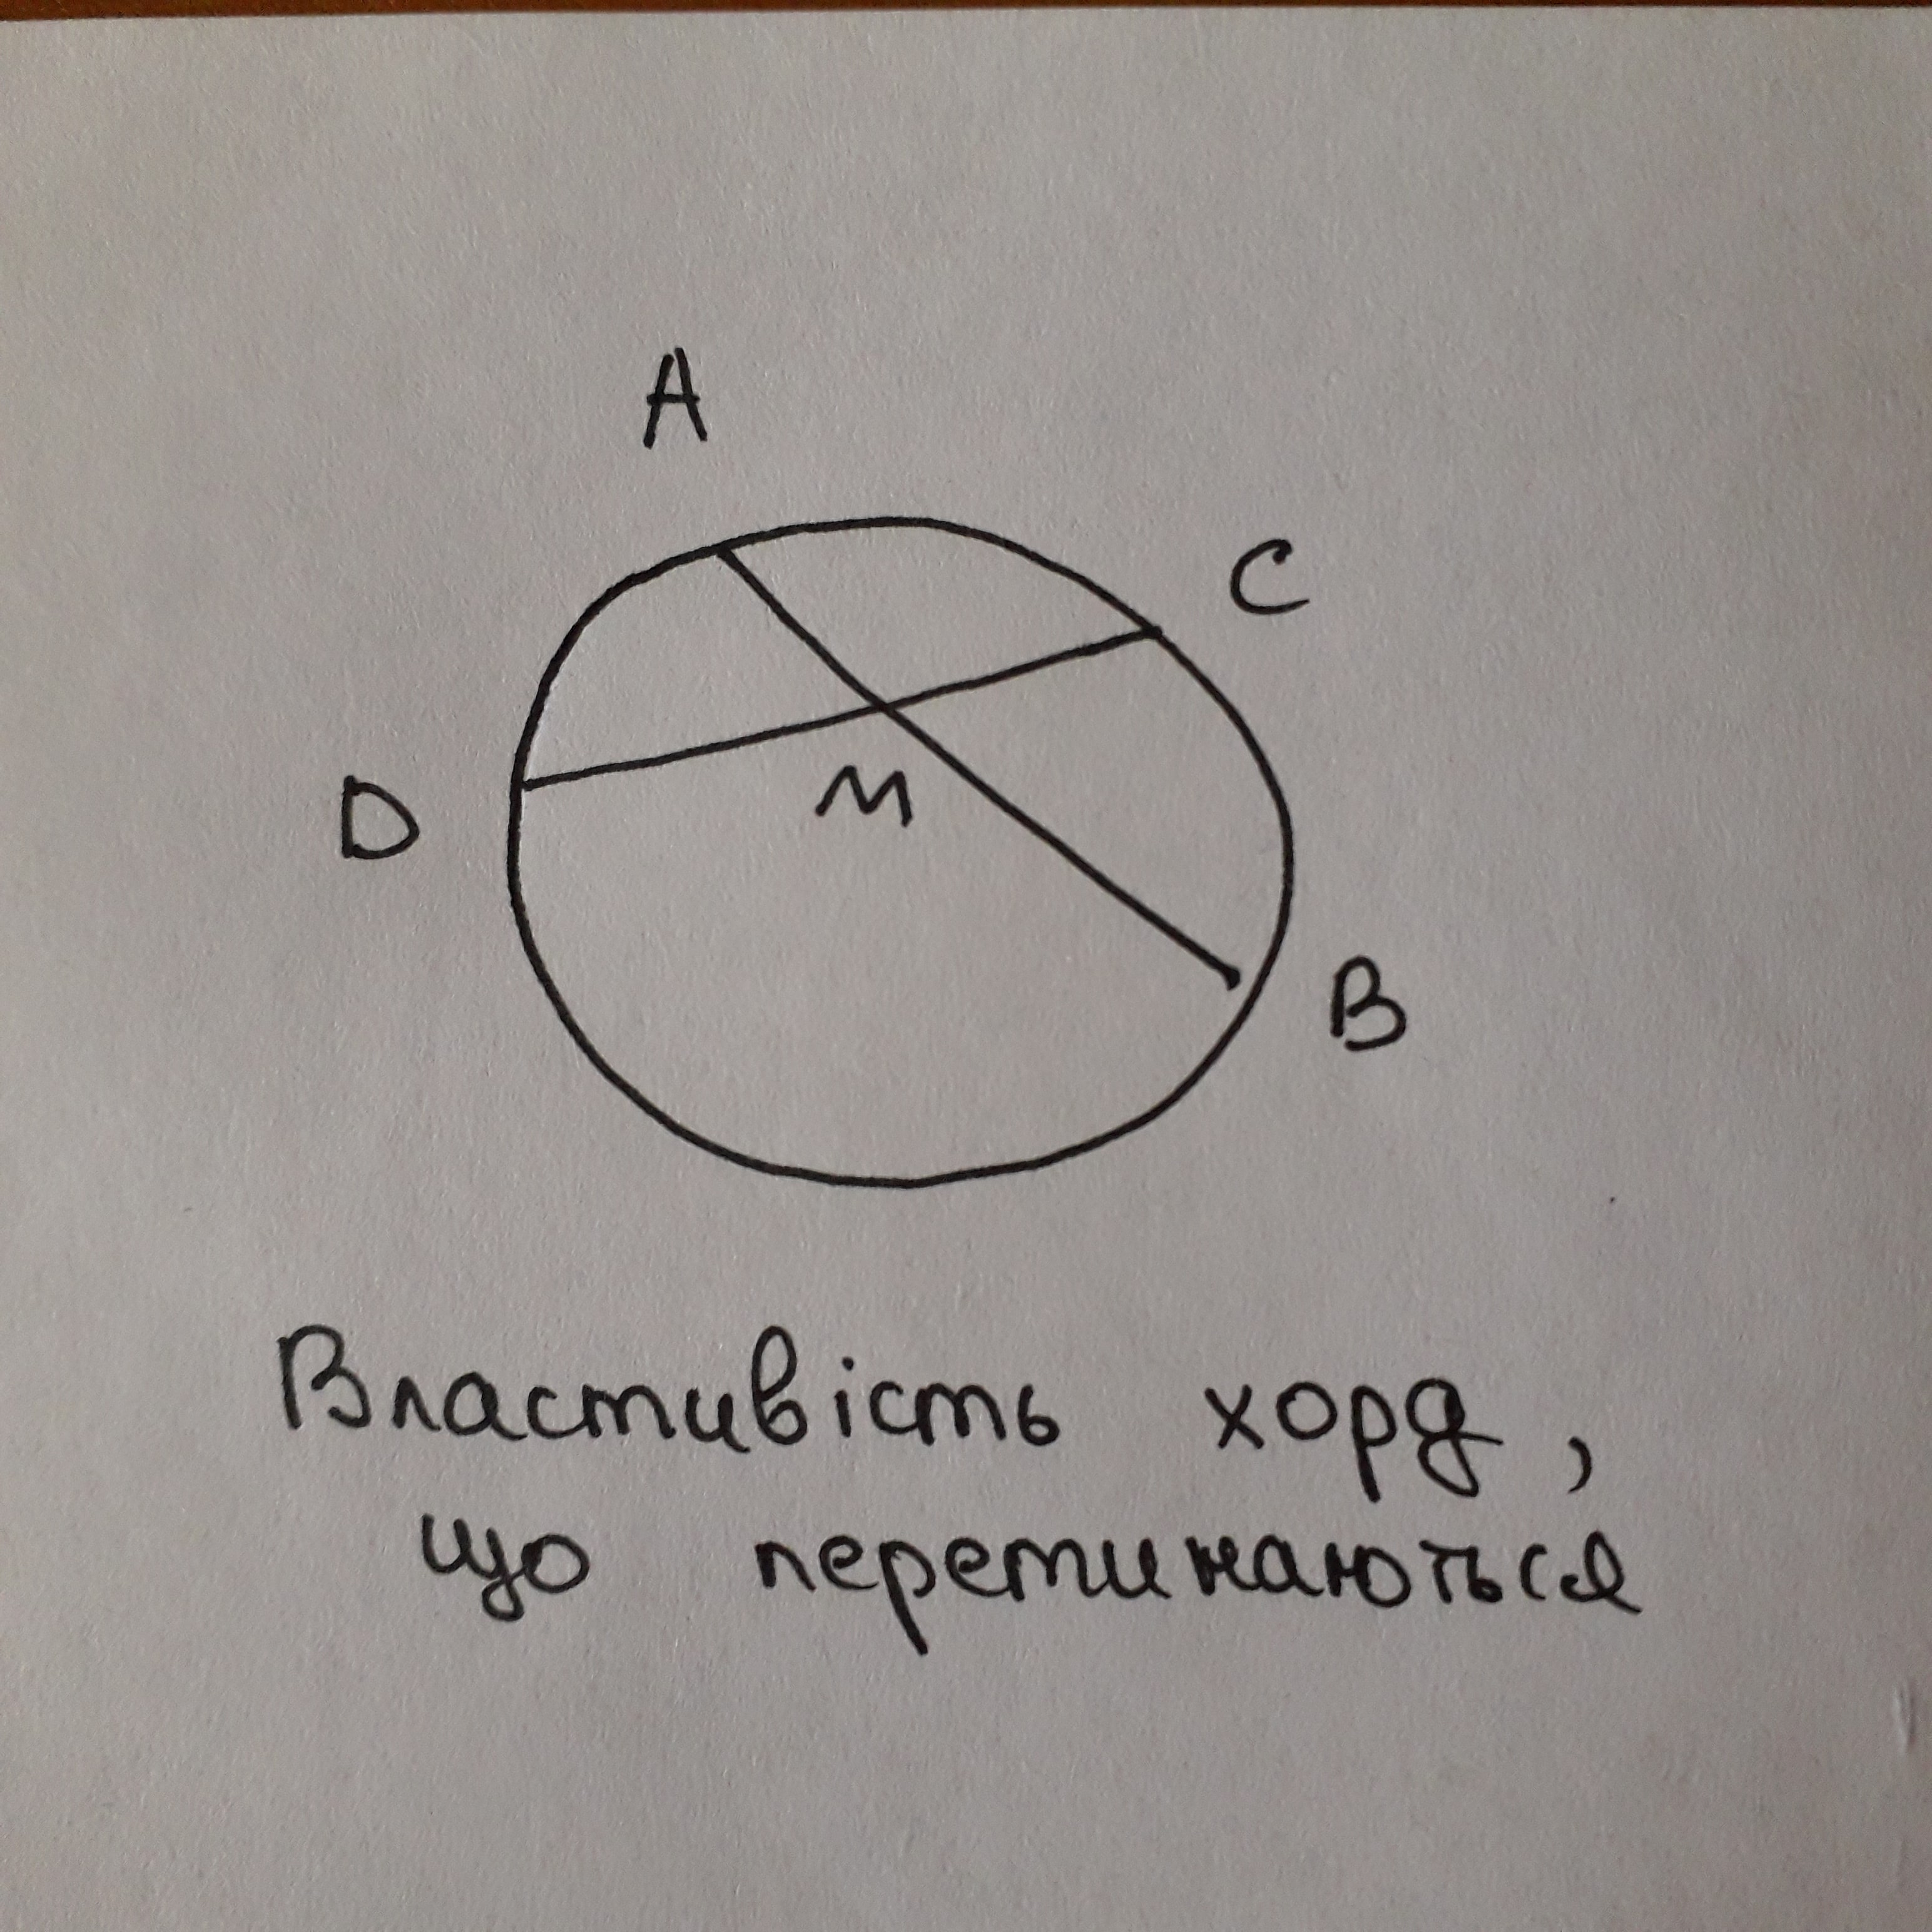 A
C
D
M
B
Властивість хорд,
що перетинаються